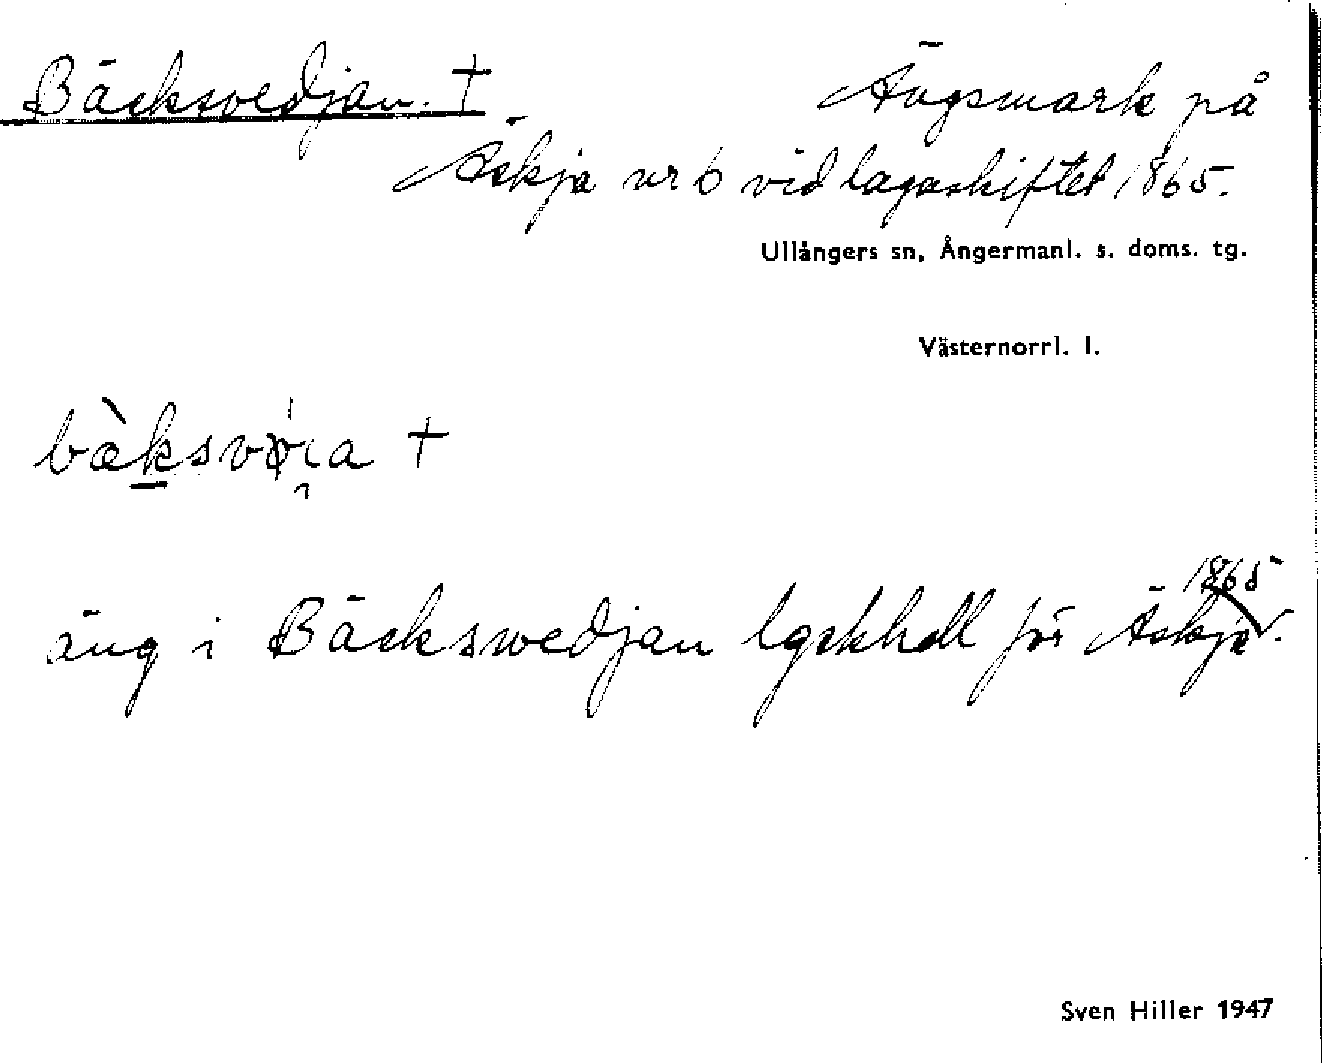 Bäckswedjan. † Ängsmark på
Äskja nr 6 vid lagaskiftet 1865.
Ullångers sn, Ångermanl. s. doms. tg.
Västernorrl. l.
†
1865
äng i Bäckswedjan lgskhdl för Äskja.
Sven Hiller 1947